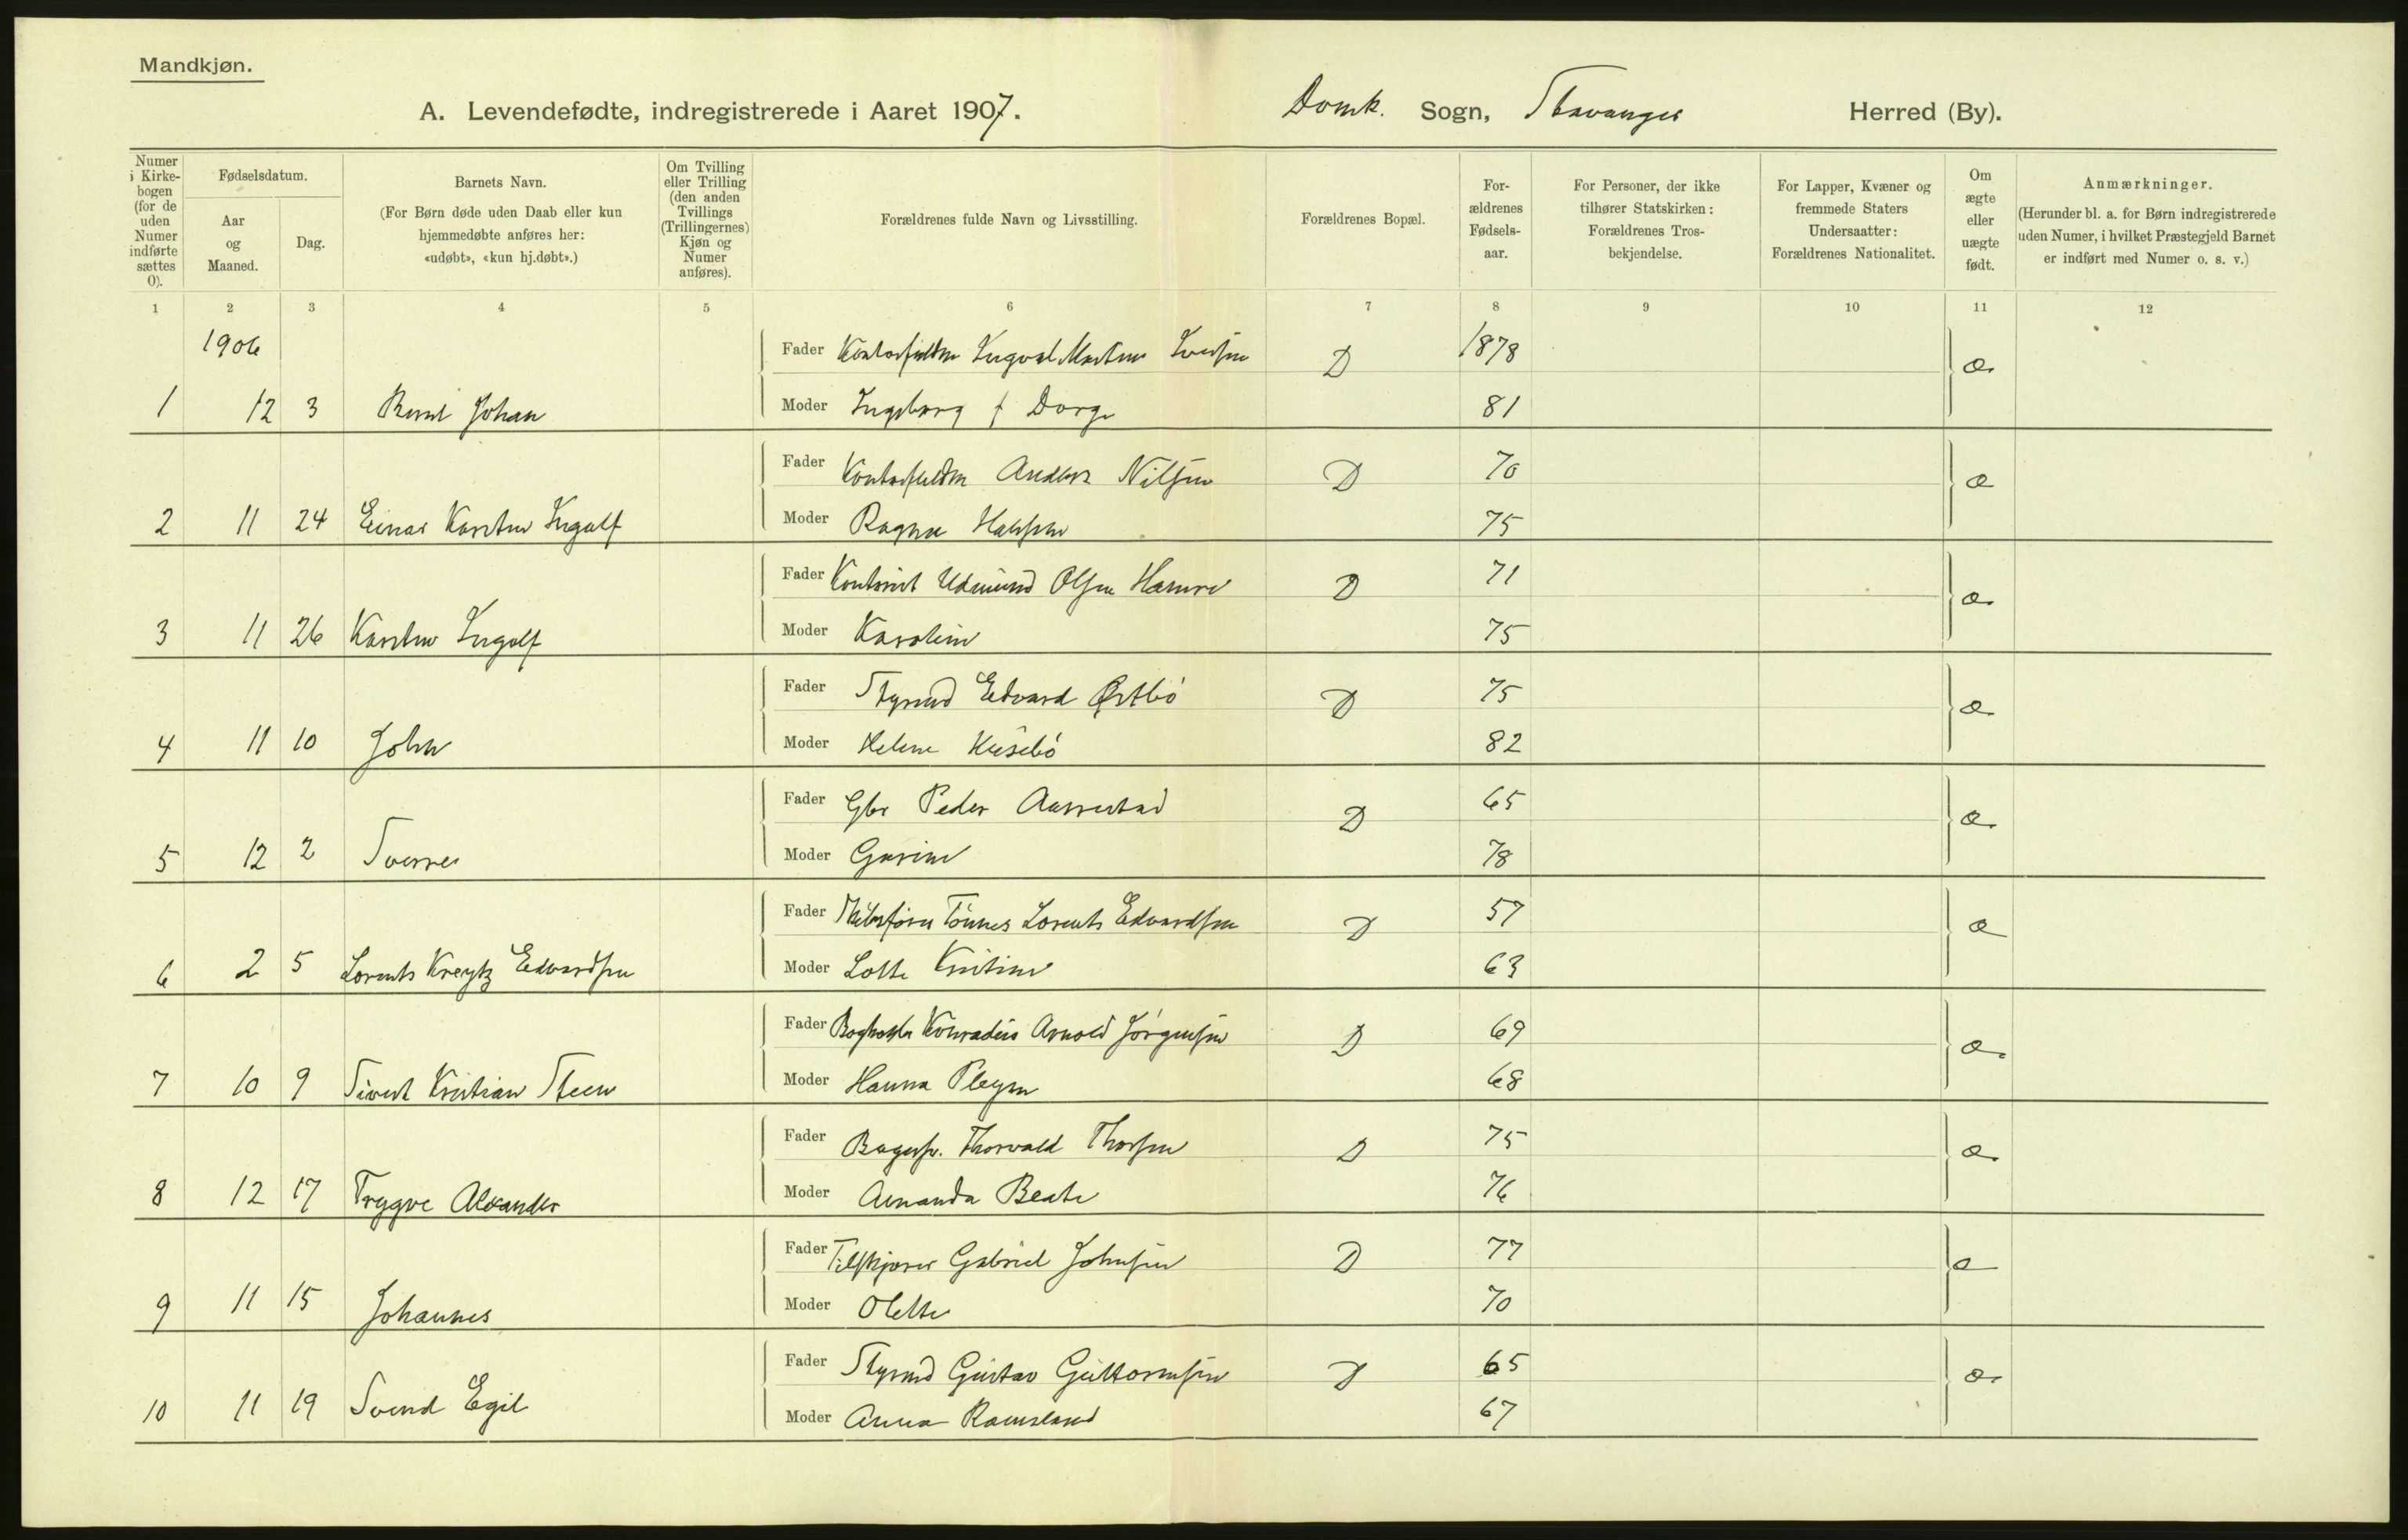 Mandkjøn.
A. Levendefødte, indregistrerede i Aaret 1907.
Domk. Sogn, Stavanger Herred (By).
Numer i Kirkebogen (for de uden Numer indførte sættes 0).
Fødselsdatum.
Aar og Maaned.
Dag.
Barnets Navn.
(For Børn døde uden Daab eller kun hjemmedøbte anføres her: «udøbt», «kun hj.døbt».)
Om Tvilling eller Trilling (den anden Tvillings (Trillingernes) Kjøn og Numer anføres).
Forældrenes fulde Navn og Livsstilling.
Forældrenes Bopæl.
Forældrenes Fødselsaar.
For Personer, der ikke tilhører Statskirken: Forældrenes Trosbekjendelse.
For Lapper, Kvæner og fremmede Staters Undersaatter: Forældrenes Nationalitet.
Om ægte eller uægte født.
Anmærkninger.
(Herunder bl. a. for Børn indregistrerede uden Numer, i hvilket Præstegjeld Barnet er indført med Numer o. s. v.)
1 2 3 4 5 6 7 8 9 10 11 12
1906
Fader D 1878 æ
1 12 3 Johan Moder Ingeborg f Dorge 81
Fader Anders Nilsen D 70 æ
2 11 24 Einar Karsten Ingolf Moder Ragna 75
Fader Olsen Hamre D 71 æ
3 11 26 Karsten Ingolf Moder Karoline 75
Fader Styrmd Edvard Østbö D 75 æ
4 11 10 John Moder Helene Husebö 82
Fader Gbr Peder Aarrestad D 65 æ
5 12 2 Sverre Moder Gurine 78
Fader Skibsfører Tönnes Lorents Edvardsen D 57 æ
6 2 5 Lorents Kreytz Edvardsen Moder Lotte Kristine 63
Fader Bogholder Konradius Arnold Jörgensen D 69 æ
7 10 9 Sivert Kristian Steen Moder Hanna Pleym 68
Fader Bagersv. Thorvald Thorsen D 75 æ
8 12 17 Trygve Alexander Moder Amanda Beate 76
Fader Tilskjærer Gabriel Johnsen D 77 æ
9 11 15 Johannes Moder Olette 70
Fader Styrmd Gustav Guttormsen D 65 æ
10 11 19 Svend Egil Moder Anna Ramsland 67